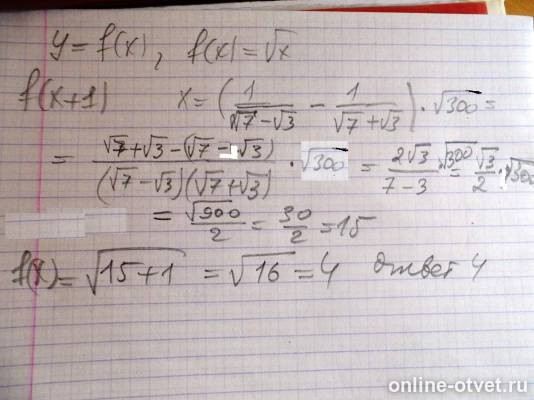 y = f(x), f(x) = √x
f(x+1) x = (1/(√7-√3) - 1/(√7+√3)) · √300 =
= (√7+√3-(√7-√3))/((√7-√3)(√7+√3)) · √300 = 2√3/(7-3) · √300 = √3/2 · √300
= √900/2 = 30/2 = 15
f(x) = √(15+1) = √16 = 4 ответ 4
online-otvet.ru